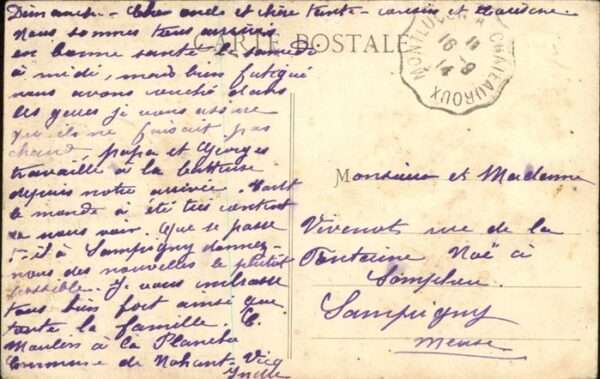 Dimanche - Cher oncle et chère tante - cousin et cousine
Nous sommes tous arrivés
en bonne santé le samedi
à midi, mais bien fatigué
nous avons couché dans
les gares je vous assure
qu'il ne faisait pas
chaud, papa et Georges
travaille à la batteuse
depuis notre arrivée. Tout
le monde à été très content
de nous voir. Que se passe
t-il à Sampigny donnez-
nous des nouvelles le plutôt
possible. Je vous embrasse
tous bien fort ainsi que
toute la famille. C.
Moulin à la Planche
Commune de Nohant-Vic
Indre
CARTE POSTALE
MONTLUÇON A CHATEAUROUX
16 - 9
14
Monsieur et Madame
Vivenot rue de la
Fontaine Noë à
Sampigny
Meuse